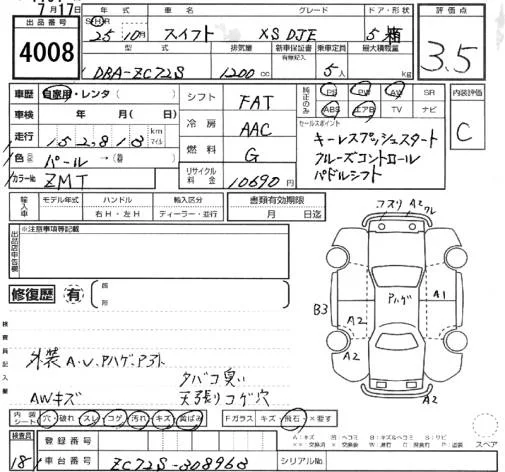 7月17日
出品番号
4008
年式 車名 グレード ドア・形状
SHR 25年10月 スイフト XS DJE 5
型式 排気量 新車保証書 乗車定員 最大積載量
有無記入
DBA-ZC72S 1200cc 5人 kg
評価点
3.5
車歴 自家用・レンタ( )
車検 年 月( 日)
走行 152,818 km マイル
色 パール→( )
カラーNo ZMT
シフト FAT
冷房 AAC
燃料 G
リサイクル料金 10690円
純正のみ
PS PW AW SR
ABS エアB TV ナビ
セールスポイント
キーレスプッシュスタート
クルーズコントロール
パドルシフト
内装評価
C
輸入車 モデル年式 ハンドル 輸入区分
年 右H・左H ディーラー・並行
書類有効期限
月 日迄
出品店申告欄
※注意事項等記載
修復歴 有
箇所
検査員記入欄
外装A.U.Pハゲ.Pヨト
タバコ臭い
AWキズ 天張りコゲ穴
コスリ A2 ワレ
Pハゲ
A1
B3
A2
A2
A2
内装シート 穴・破れ・スレ・コゲ・汚れ・キズ・黄ばみ
Fガラス キズ・飛石・×要す
スペア
検査員
181
登録番号
車台番号 ZC72S-308963
シリアルNo.